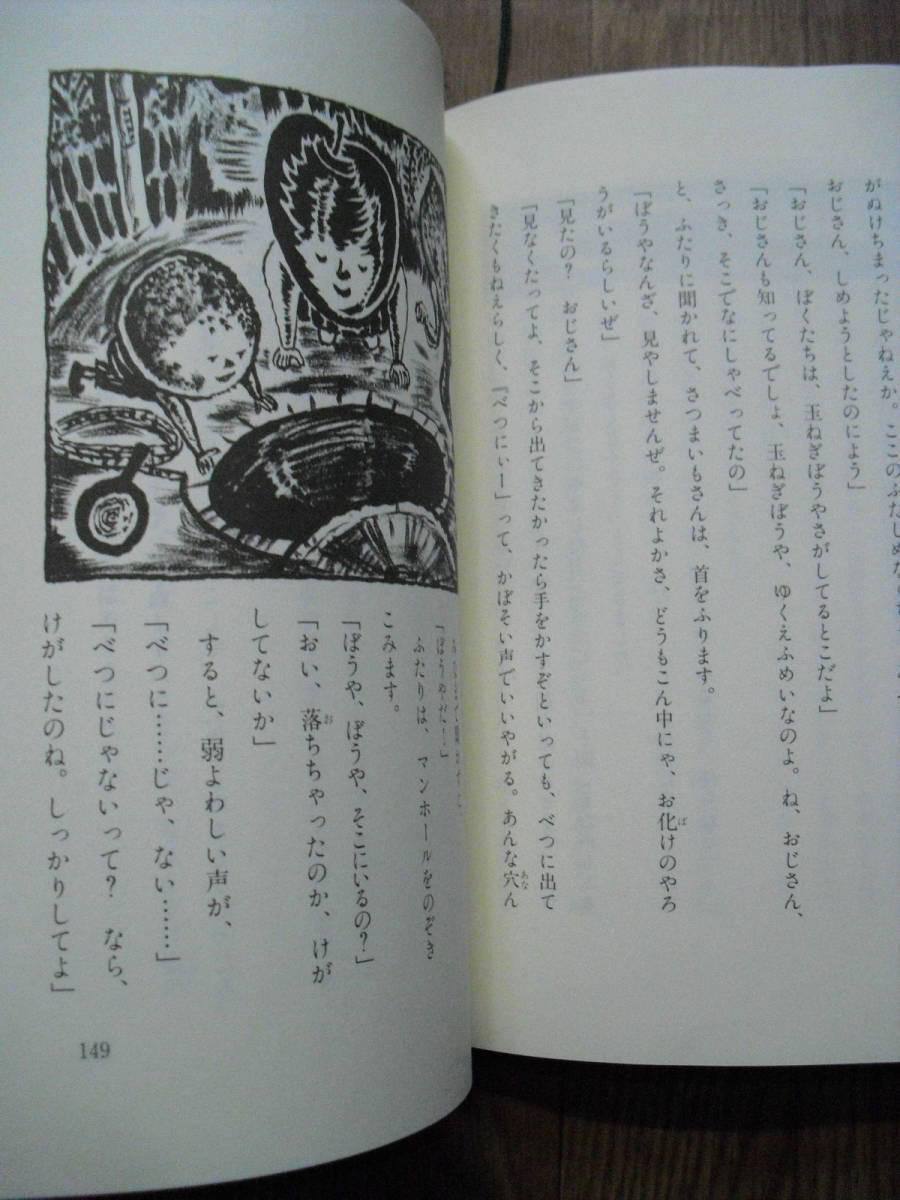 がぬけちまったじゃねえか。ここのふたしめな
おじさん、しめようとしたのによう」
「おじさん、ぼくたちは、玉ねぎぼうやさがしてるとこだよ」
「おじさんも知ってるでしょ、玉ねぎぼうや、ゆくえふめいなのよ。ね、おじさん、
さっき、そこでなにしゃべってたの」
と、ふたりに聞かれて、さつまいもさんは、首をふります。
「ぼうやなんざ、見やしませんぜ。それよかさ、どうもこん中にゃ、お化けのやろ
うがいるらしいぜ」
「見たの? おじさん」
「見なくたってよ、そこから出てきたかったら手をかすぞといっても、べつに出て
きたくもねえらしく、『べつにぃー』って、かぼそい声でいいやがる。あんな穴ん
「ぼうやだ!」
ふたりは、マンホールをのぞき
こみます。
「ぼうや、ぼうや、そこにいるの?」
「おい、落ちちゃったのか、けが
してないか」
すると、弱よわしい声が、
「べつに……じゃ、ない……」
「べつにじゃないって? なら、
けがしたのね。しっかりしてよ」
149